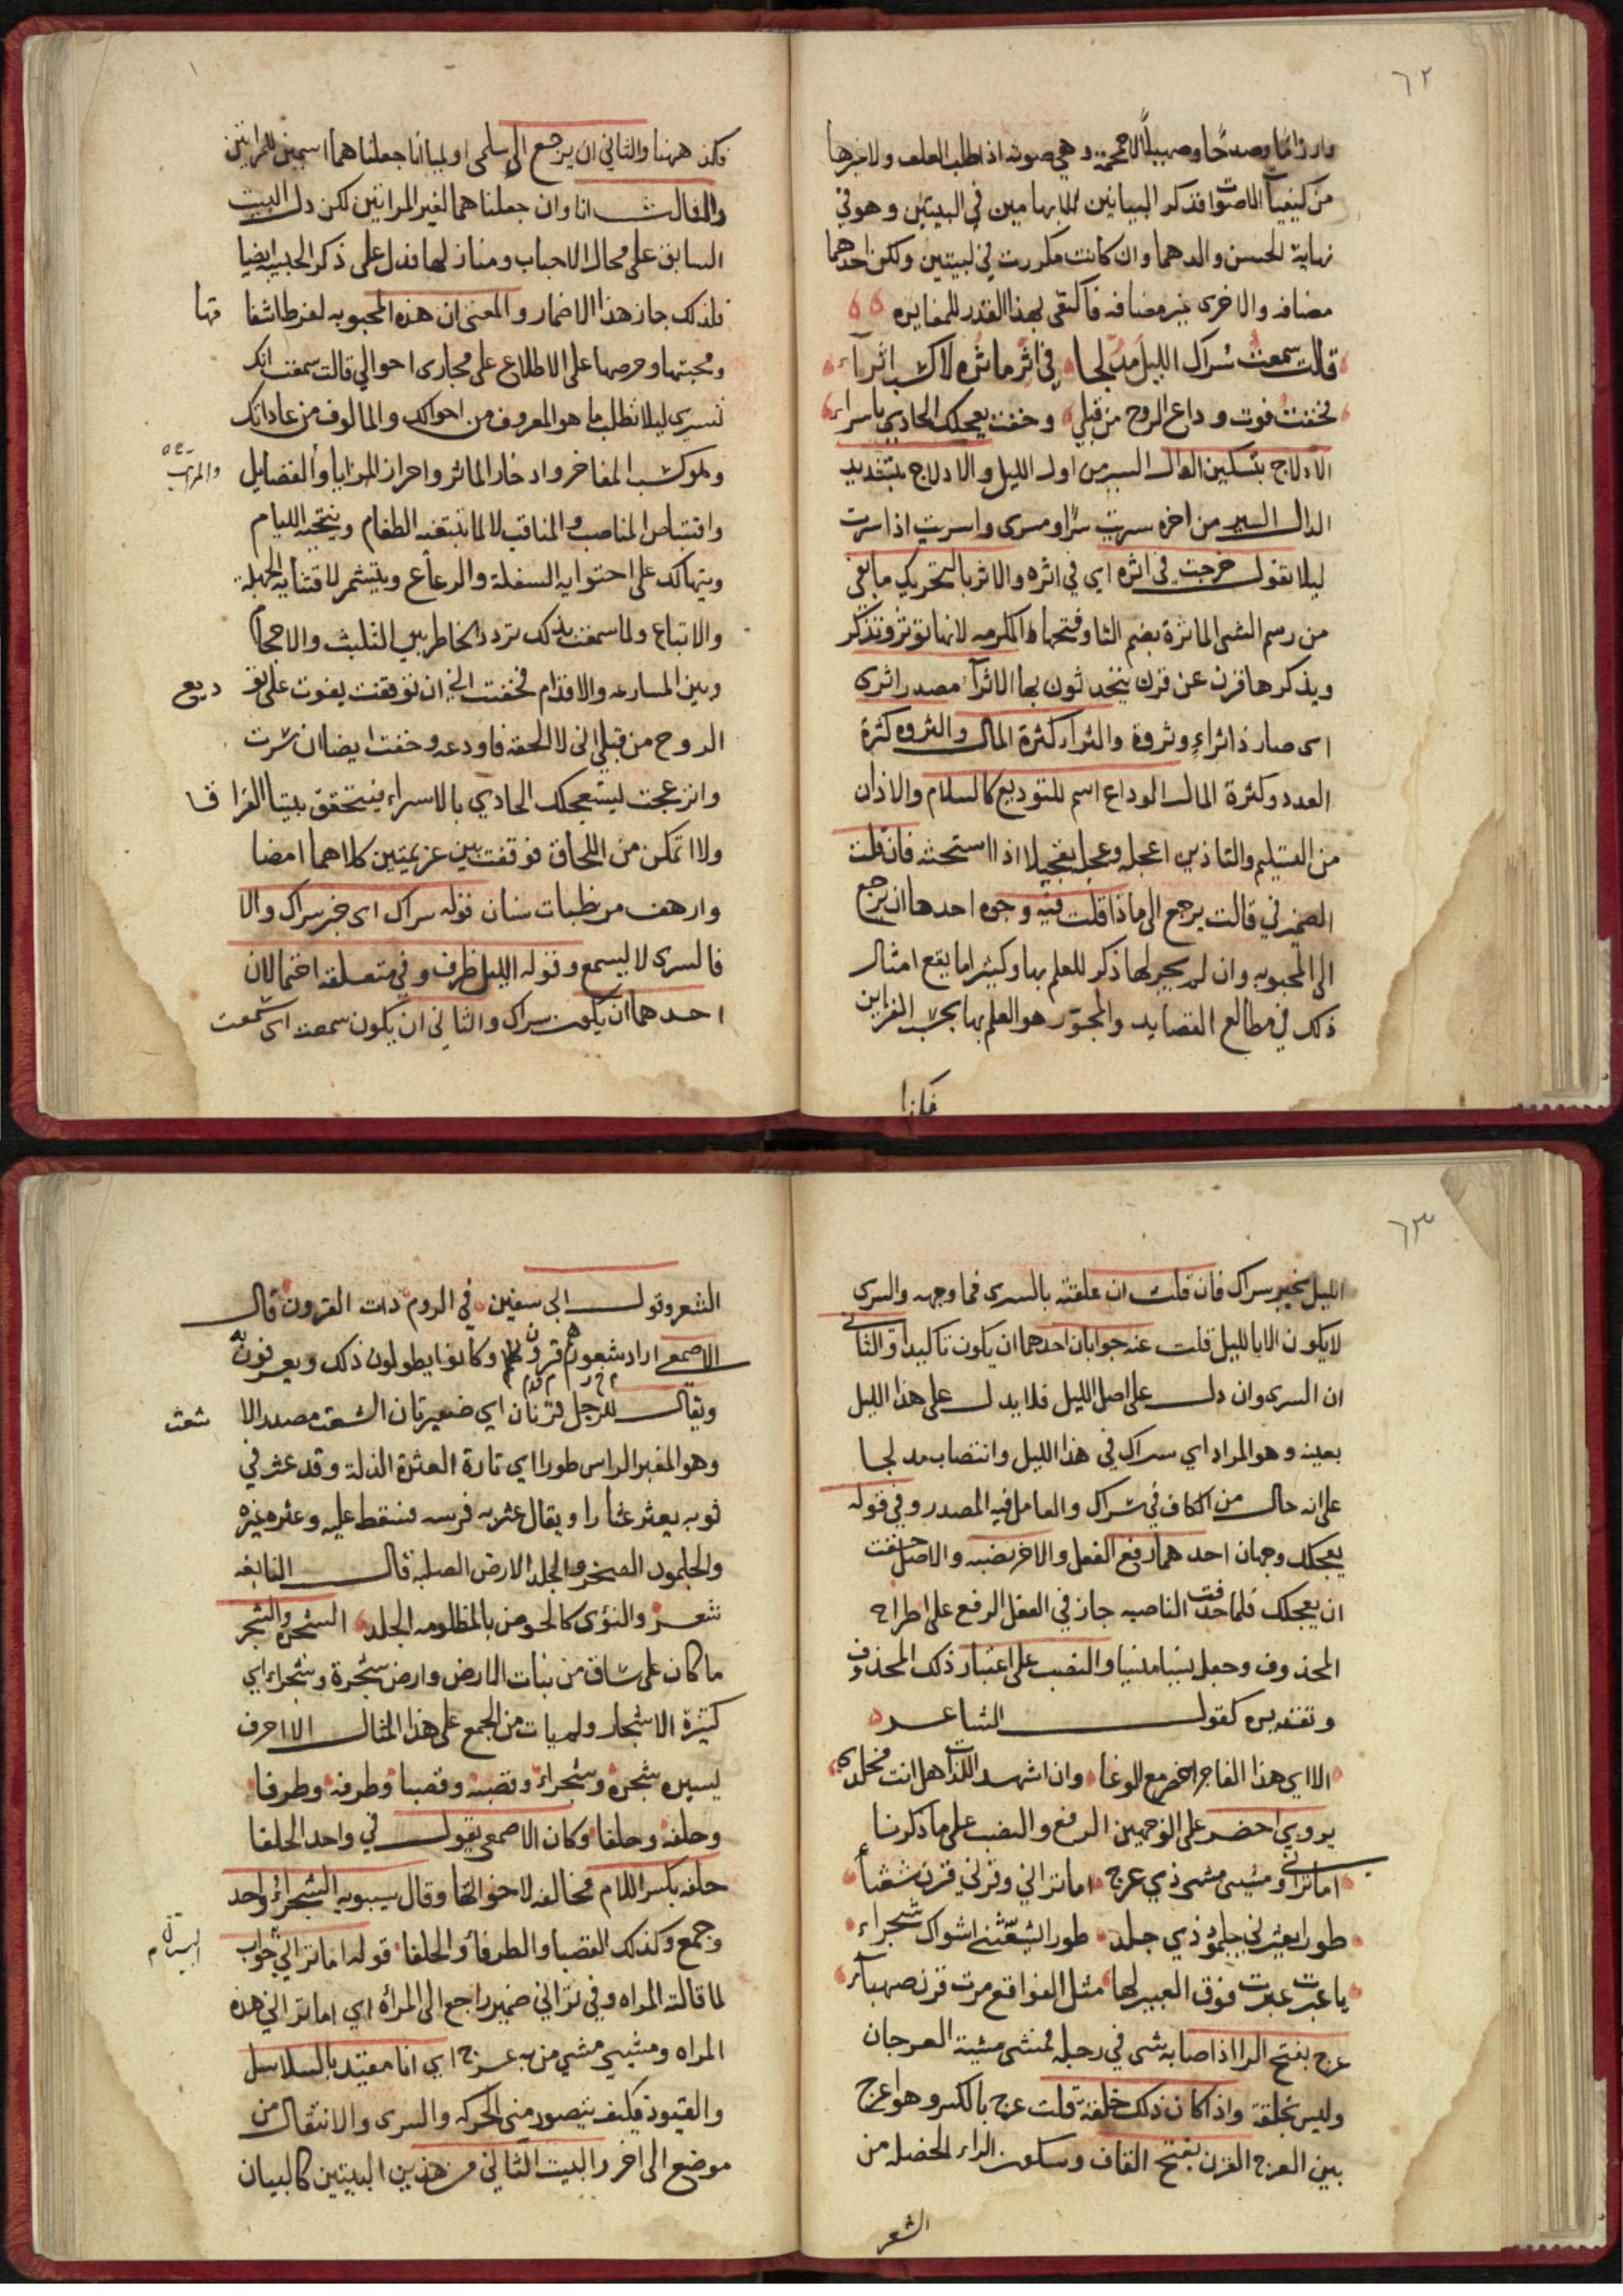 ٦٢
وارزاما وصدحا وصهيلا الاحمحمة وهي صوته اذا طلب العلف ولاغيرها
من كيفيات الاصوات فذكر البيانين للابهامين في البيتين وهو في
نهاية الحسن والدهما وان كانت مكررت في لبيتين ولكن احدهما
مضافه والاخرى غير مضافه فاكتفى بهذا القدر للمغايره
قالت سمعت سراك الليل مدلجا في اثر ماثره لاكسب اثرآء
فخفت فوت وداع الروح من قبلي وخفت يعجلك الحادي باسراء
الادلاج بتسكين الدال السير من اول الليل والادلاج بتشديد
الدال السير من اخره سريت سرا ومسرى واسريت اذا سرت
ليلا تقول خرجت في اثره اي في اثره والاثر بالتحريك ما بقى
من رسم الشى الماثرة بضم الثا وفتحها المكرمه لانها توثر وتذكر
ويذكرها قرن عن قرن يتحدثون بها الاثرآ مصدر اثرى
اى صار ذا ثراء وثروة والثراء كثرة المال والثروه كثرة
العدد وكثرة المال الوداع اسم للتوديع كالسلام والاذان
من التسليم والتاذين اعجله وعجله تعجيلا اذا استحثه فان قلت
الضمير في قالت يرجع الى ماذا قلت فيه وجوه احدها ان يرجع
الى المحبوبه وان لم يجر لها ذكر للعلم بها وكثيرا ما يقع امثال
ذلك في مطالع القصايد والمجوّر هو العلم بها بحسب القراين
فكذا
فكذا ههنا والثاني ان يرجع الى سلمى او لميا انا جعلناهما اسمين للمراتين
والثالث انا وان جعلناهما لغير المراتين لكن دل البيت
السابق على محال الاحباب ومنازلها فدل على ذكر الحبيبه ايضا
فلذلك جاز هذا الاضمار والمعنى ان هذه المحبوبه لفرط اشفا قها
ومحبتها وحرصها على الاطلاع على مجارى احوالي قالت سمعت انك
تسرى ليلا تطلب ما هو المعروف من احوالك والمالوف من عاداتك
وهو كسب المفاخر وادخار الماثر واحراز المزايا والفضايل والمراتب
واقتناص المناصب والمناقب لا لما تبتغيه الطغام وينتجيه الليام
ويتهالك على احتوايه السفلة والرعاع ويتشمر لاقتنايه الجهلة
والاتباع ولما سمعت بذلك تردد الخاطر بين التلبث والاحجام
وبين المسارعه والاقدام فخفت الخ ان توقفت يفوت على تو ديع
الروح من قبلي انى لا الحقه فاودعه وخفت ايضا ان سرت
وانزعجت ليستعجلك الحادي بالاسراء فيتحقق بيتنا الفرا ق
ولا اتمكن من اللحاق فوقفت بين عزيمتين كلاهما امضا
وارهف من ظبات سنان قوله سراك اى خبر سراك والا
فالسرى لا يسمع وقوله الليل ظرف وفي متعلقه احتمالان
احدهما ان يكون سراك والثاني ان يكون سمعت اى سمعت
٦٣
الليل بخبر سراك فان قلت ان علقته بالسرى فما وجهه والسرى
لا يكون الا بالليل قلت عنه جوابان احدهما ان يكون تاكيدا والثاني
ان السرى وان دل على اصل الليل فلا يدل على هذا الليل
بعينه وهو المراد اي سراك في هذا الليل وانتصاب مدلجا
على انه حال من الكاف في سراك والعامل فيه المصدر وفي قوله
يعجلك وجهان احدهما رفع الفعل والاخر نصبه والاصل خفت
ان يعجلك فلما حذفت الناصبه جاز في الفعل الرفع على اطراح
المحذوف وجعله نسيا منسيا والنصب على اعتبار ذلك المحذوف
وتقديره كقول الشاعر
الا اي هذا الفاجر احضر مع الوغا وان اشهد اللذات هل انت مخلدى
يروى احضر على الوجهين الرفع والنصب على ما ذكرنا
اما تراني ومشيى مشى ذي عرج اما تراني وترني قرن شعثاء
طورا يعثرني جلمود ذي جلد طورا تشعثني اشواك شجراء
يا عبرت عبرت فوق العبير لها مثل الفواقع مرت قرن صهباء
عرج بفتح الرا اذا صابه شى في رجله فمشى مشية العرجان
وليس بخلقة واذا كان ذلك خلقة قلت عرج بالكسر وهو اعرج
بين العرج القرن بفتح القاف وسكون الراء الخصله من
الشعر
الشعر وقول ابي سفين في الروم ذات القرون قال
الاصمعي اراد شعورهم قرون لهم وكانوا يطولون ذلك ويعرفون به
ويقال للرجل قرنان اي ضفيرتان الشعث مصدر الا شعث
وهو المغبر الراس طورا اي تارة العثرة الزلة وقد عثر في
ثوبه يعثر عثارا ويقال عثر به فرسه فسقط عليه وعثره غيره
والجلمود الصخر والجلد الارض الصلبة قال النابغه
شعر والنؤى كالحوض بالمظلومه الجلد الشجر والشجر
ما كان على ساق من نبات الارض وارض شجرة وشجراء اي
كثيرة الاشجار ولم يات من الجمع على هذا المثال الا احرف
يسيره شجرة وشجراء وقصبه وقصبا وطرفه وطرفا
وحلفه وحلفا وكان الاصمعى يقول في واحد الحلفا
حلفه بكسر اللام مخالفه لاخواتها وقال سيبويه الشجراء واحد
وجمع وكذلك القصبا والطرفا والحلفا قوله اما تراني جواب
لما قالته المراه وفي تراني ضمير راجع الى المرأه اي اما تراني هذه
المراه ومشيي مشي من به عرج اي انا مقيد بالسلاسل
والقيود فكيف يتصور منى الحركه والسرى والانتقال من
موضع الى اخر والبيت الثاني من هذين البيتين كالبيان